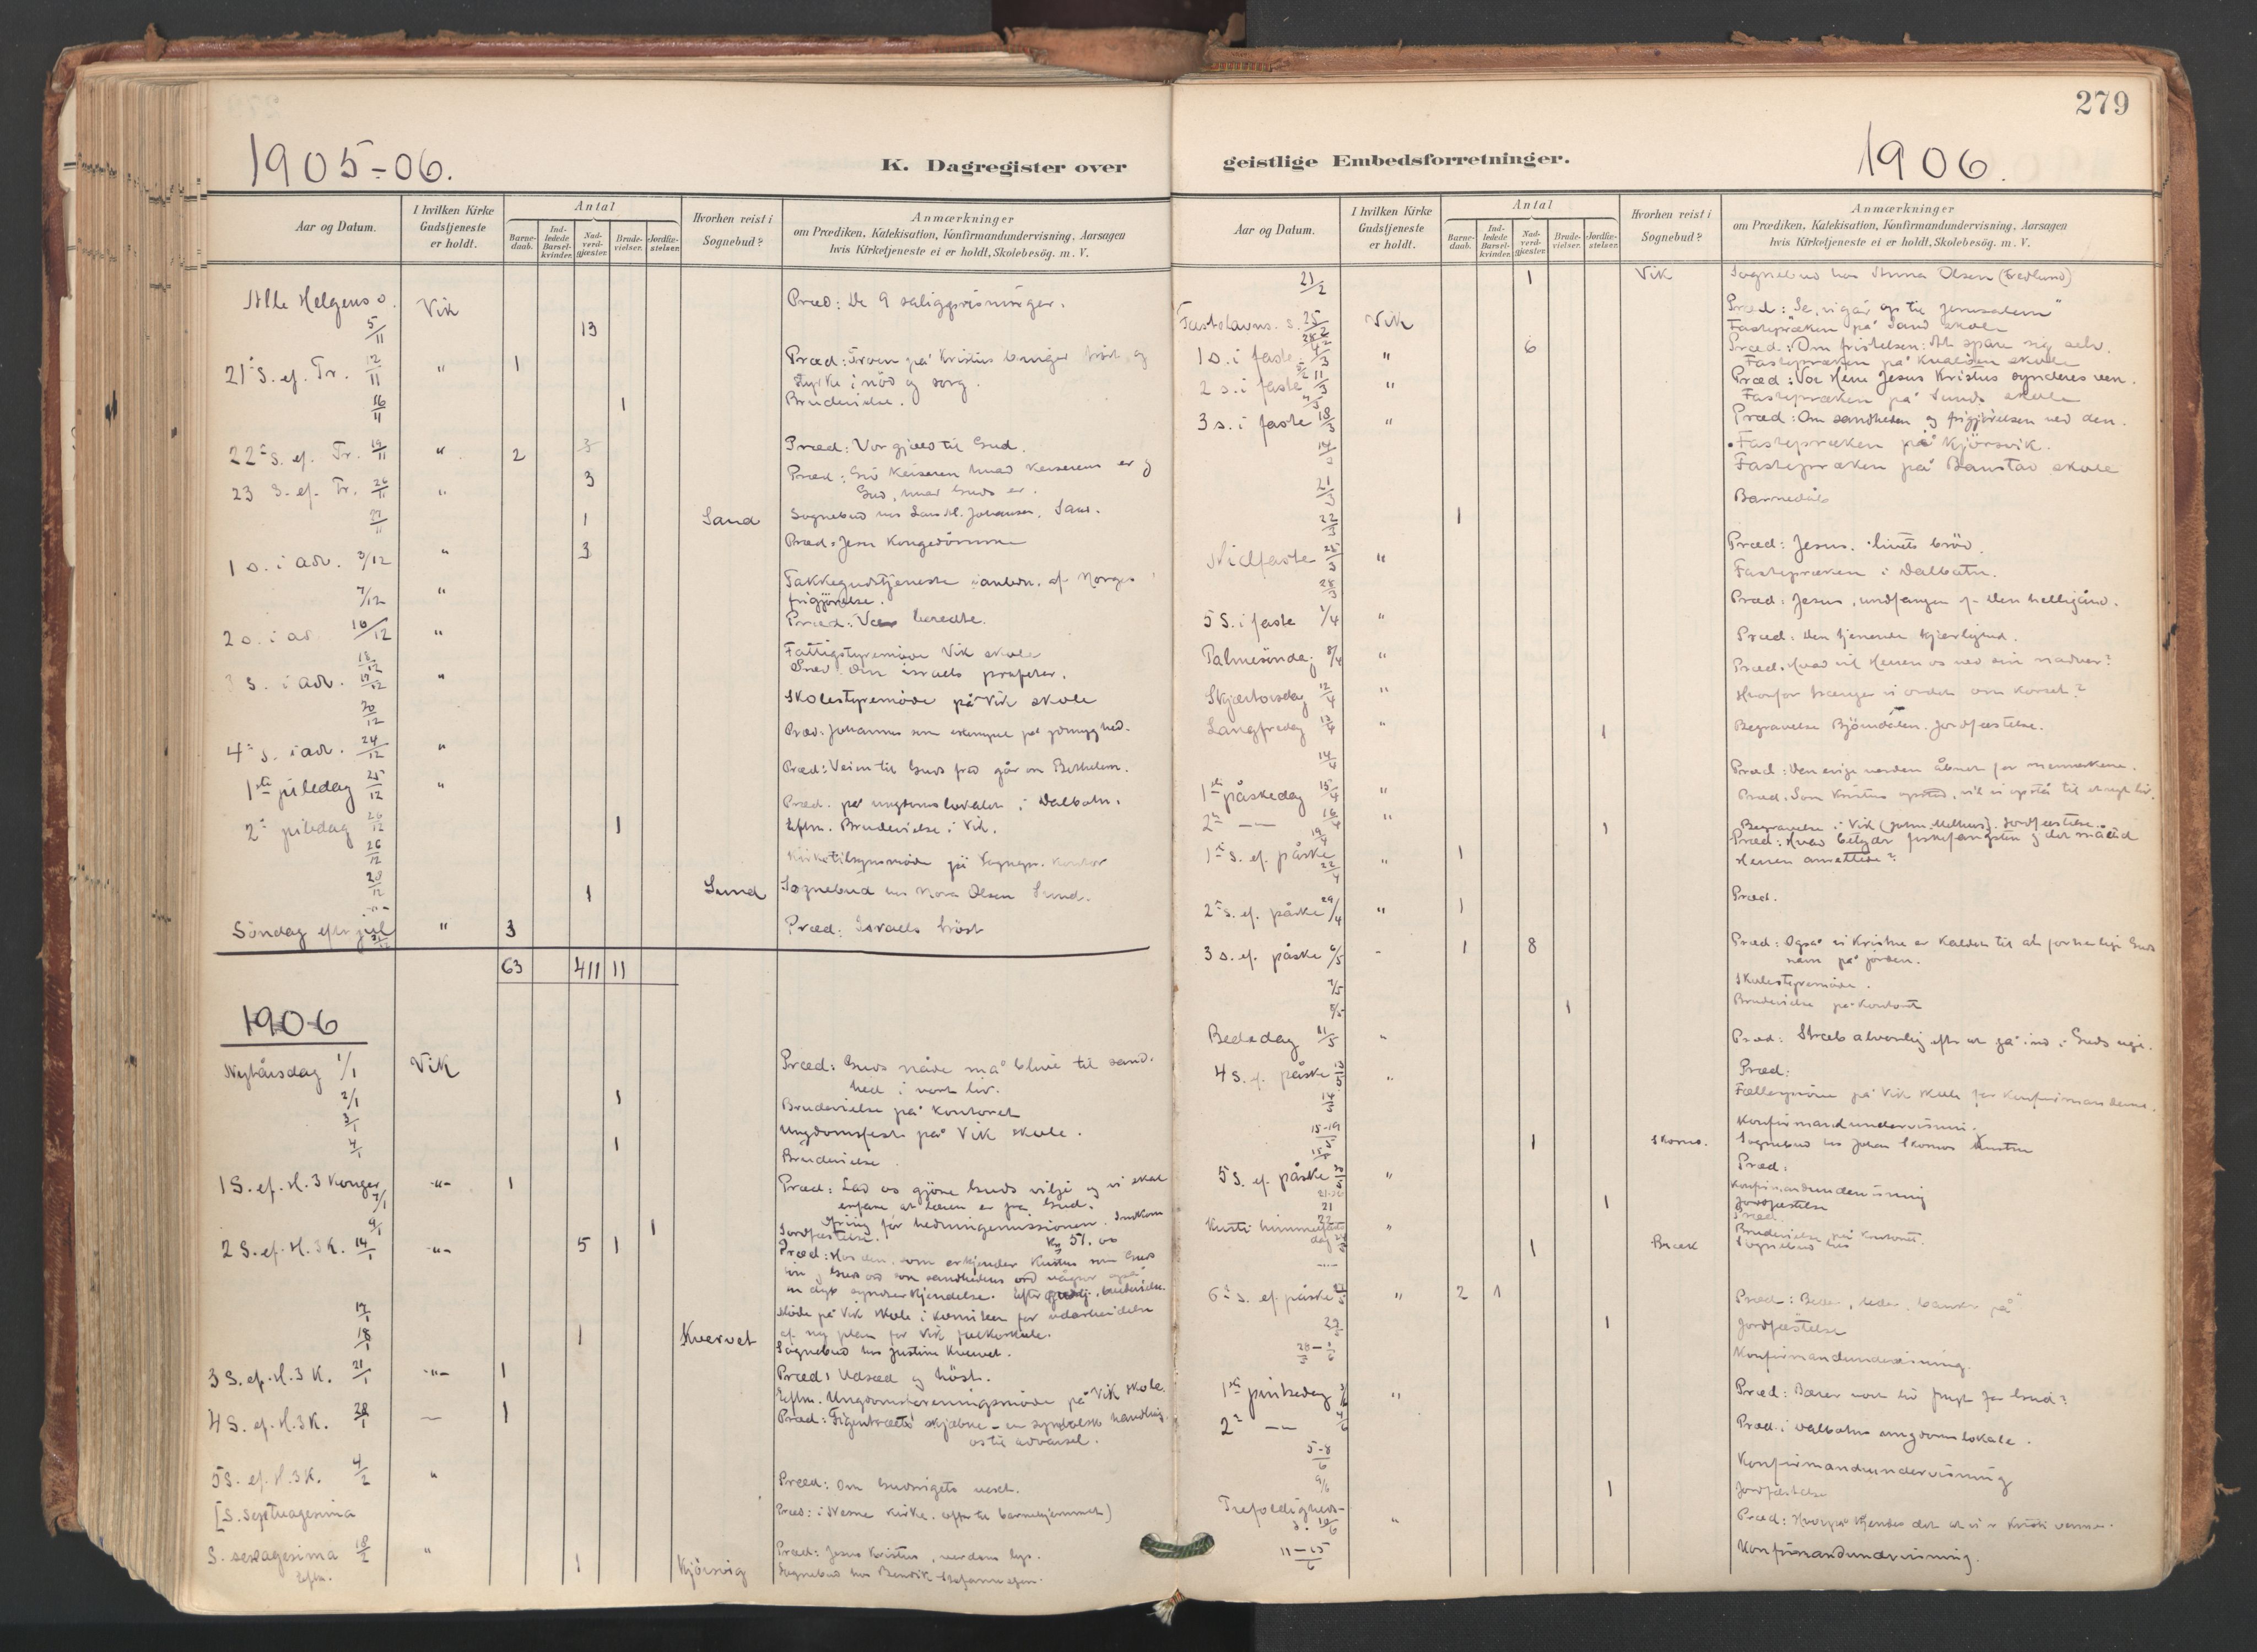 279
1905-06.
K. Dagregister over
Aar og Datum.
I hvilken Kirke Gudstjeneste er holdt.
Antal
Barnedaab.
Indledede Barselkvinder.
Nadverdgjæster.
Brudevielser.
Jordfæstelser.
Hvorhen reist i Sognebud?
Anmærkninger
om Prædiken, Katekisation, Konfirmandundervisning, Aarsagen
hvis Kirketjeneste ei er holdt, Skolebesög. m. V.
Alle Helgens s. 5/11 Vik 13 Præd: De 9 saligprisninger.
21 S. ef. Tr. 12/11 " 1 Præd: Troen på Kristus bringer trøst og
styrke i nöd og sorg.
16/11 1 Brudevielse.
22 S. ef. Tr. 19/11 " 2 3 Præd: Vor gjæld til Gud.
23 S. ef. Tr. 26/11 " 3 Præd: Giv Keiseren hvad Keiserens er og
Gud, hvad Guds er.
27/11 1 Sand Sognebud hos Johansen, Sand.
1 s. i adv. 3/12 " 3 Præd: Jesu Kongedömme
7/12 " Takkegudstjeneste i anledn. af Norges
frigjörelse.
2 s. i ad 10/12 " Præd: Vær beredte.
18/12 Fattigstyremöde Vik skole
3 s. i adv. 17/12 " Præd. Om israels profeter.
20/12 Skolestyremöde på Vik skole
4 s. i adv. 24/12 " Præd. Johannes som eksempel på ydmyghed.
1ste juledag 25/12 " Præd: Veien til Guds fred går om Bethlehem.
2 juledag 26/12 Præd. på ungdomslokalet i Dalbotn.
26/12 1 Eftm. Brudevielse i Vik.
28/12 Kirketilsynsmöde på Sognepr. kontor
-"- 1 Sund Sognebud hos Nora Olsen Sund.
Söndag efter jul 31/12 " 3 Præd: Israels tröst
63 411 11
1906
Nytårsdag 1/1 Vik Præd: Guds nåde må blive til sand-
hed i vort liv.
2/1 1 Brudevielse på kontoret
3/1 Ungdomsfest på Vik skole.
4/1 1 Brudevielse.
1 S. ef. H. 3 Konger 7/1 -"- 1 Præd: Lad os gjöre Guds vilje og vi skal
erfare at læren er fra Gud.
Ofring for hedningemissionen. Indkom
Kr 51.00
9/1 1 Jordfæstelse.
2 S. ef. H. 3 K. 14/1 -"- 5 1 Præd: Hos den, som erkjender Kristus som Guds
sön og Guds ord som sandhedens ord også
en dyb synderkjendelse. Efter brudevielse.
17/1 Möde på Vik skole i komiteen for udarbeidelse
af ny plan for Vik folkeskole.
18/1 1 Kvervet Sognebud hos Justine Kvervet.
3 S. ef. H. 3 K. 21/1 -"- 1 Præd: Udsæd og höst.
Eftm. Ungdomsforeningsmöde på Vik skole.
4 S. ef. H. 3 K. 28/1 — 1 Præd: Figentræets skjæbne - en symbolsk handling
os til advarsel.
5 S. ef. H. 3 K. 4/2 " Præd: Om Gudsrigets vekst.
[S. Septuagesima Præd: i Nesne Kirke. Offer til barnehjemmet)
S. sexagesima 18/2 " Præd: Jesus Kristus, verdens lys.
Eftm. 1 Kjörsvig Sognebud hos
geistlige Embedsforretninger.
1906.
Aar og Datum.
I hvilken Kirke Gudstjeneste er holdt.
Antal
Barnedaab.
Indledede Barselkvinder.
Nadverdgjæster.
Brudevielser.
Jordfæstelser.
Hvorhen reist i Sognebud?
Anmærkninger
om Prædiken, Katekisation, Konfirmandundervisning, Aarsagen
hvis Kirketjeneste ei er holdt, Skolebesög. m. V.
21/2 1 Vik Sognebud hos Anna Olsen
Fastelavns. s. 25/2 Vik Præd: "Se, vi går op til Jerusalem"
Fastepræken på Sand skole
1 s. i faste 4/3 " 6 Præd: Om fristelsen: At spare sig selv.
Fastepræken på skole
2 s. i faste 11/3 " Præd: Vor Herre Jesus Kristus synderes ven.
Fastepræken på Sund skole
3 s. i faste 18/3 " Præd: Om sandheden og frigjörelsen ved den.
Fastepræken på Kjörsvik.
21/3 Fastepræken på skole
22/3 1 Barnedåb
Midfaste 25/3 " Præd: Jesus. livets bröd.
28/3 Fastepræken i Dalbotn.
5 S. i faste 1/4 " Præd: Jesus, undfangen af den helligånd.
Palmesöndag 8/4 " Præd: Den tjenende kjærlighed.
Skjærtorsdag 12/4 " Præd. Hvad vil Herren os ved sin nadver?
Langfredag 13/4 " Hvorfor trænger vi ordet om korset?
14/4 1 Begravelse Björndalen. Jordfæstelse.
1ste påskedag 15/4 " Præd: Den evige verden åbnet for menneskene.
2 -"- 16/4 " Præd. Som Kristus opstod, vil vi opstå til et nyt liv.
19/4 1 Begravelse i Vik. Jordfæstelse.
1 S. ef. påske 22/4 " 1 Præd: Hvad betyder fiskefangsten og det måltid
Herren anrettede?
2 S. ef. påske 29/4 " 1 Præd.
3 s. ef. påske 6/5 - 1 8 Præd: Også vi Kristne er kaldet til at forherlige Guds
navn på jorden.
7/5 Skolestyremöde.
1 Brudevielse på kontoret
Bededag 11/5 " Præd: Stræb alvorlig efter at gå ind i Guds rige.
4 S. ef. påske 13/5 " Præd:
14/5 Fællespröve på Vik skole for konfirmanderne.
15-19/5 Konfirmandundervisn.
1 Skorms. Sognebud hos Johan
5 S. ef. påske 20/5 " Præd:
Konfirmandundervisning
1 Jordfæstelse
Kristi himmelfartsdag 24/5 " Præd.
Brudevielse på kontoret.
1 Bræk Sognebud hos
6 S. ef. påske 27/5 " 2 1 Præd: "Beder, leder, banker på"
1 Jordfæstelse
28/5 - 1/6 Konfirmandundervisning.
1ste pintsedag 3/6 " Præd: Bærer vort liv frugt for Gud?
2 -"- 4/6 Præd. i Dalbotns ungdomslokale.
5-8/6 Konfirmandundervisning
9/6 1 Jordfæstelse
Trefoldigheds-
s. 10/6 " Præd: Hvorpå kjendes det at vi er Kristi venner.
11-15/6 Konfirmandundervisning.